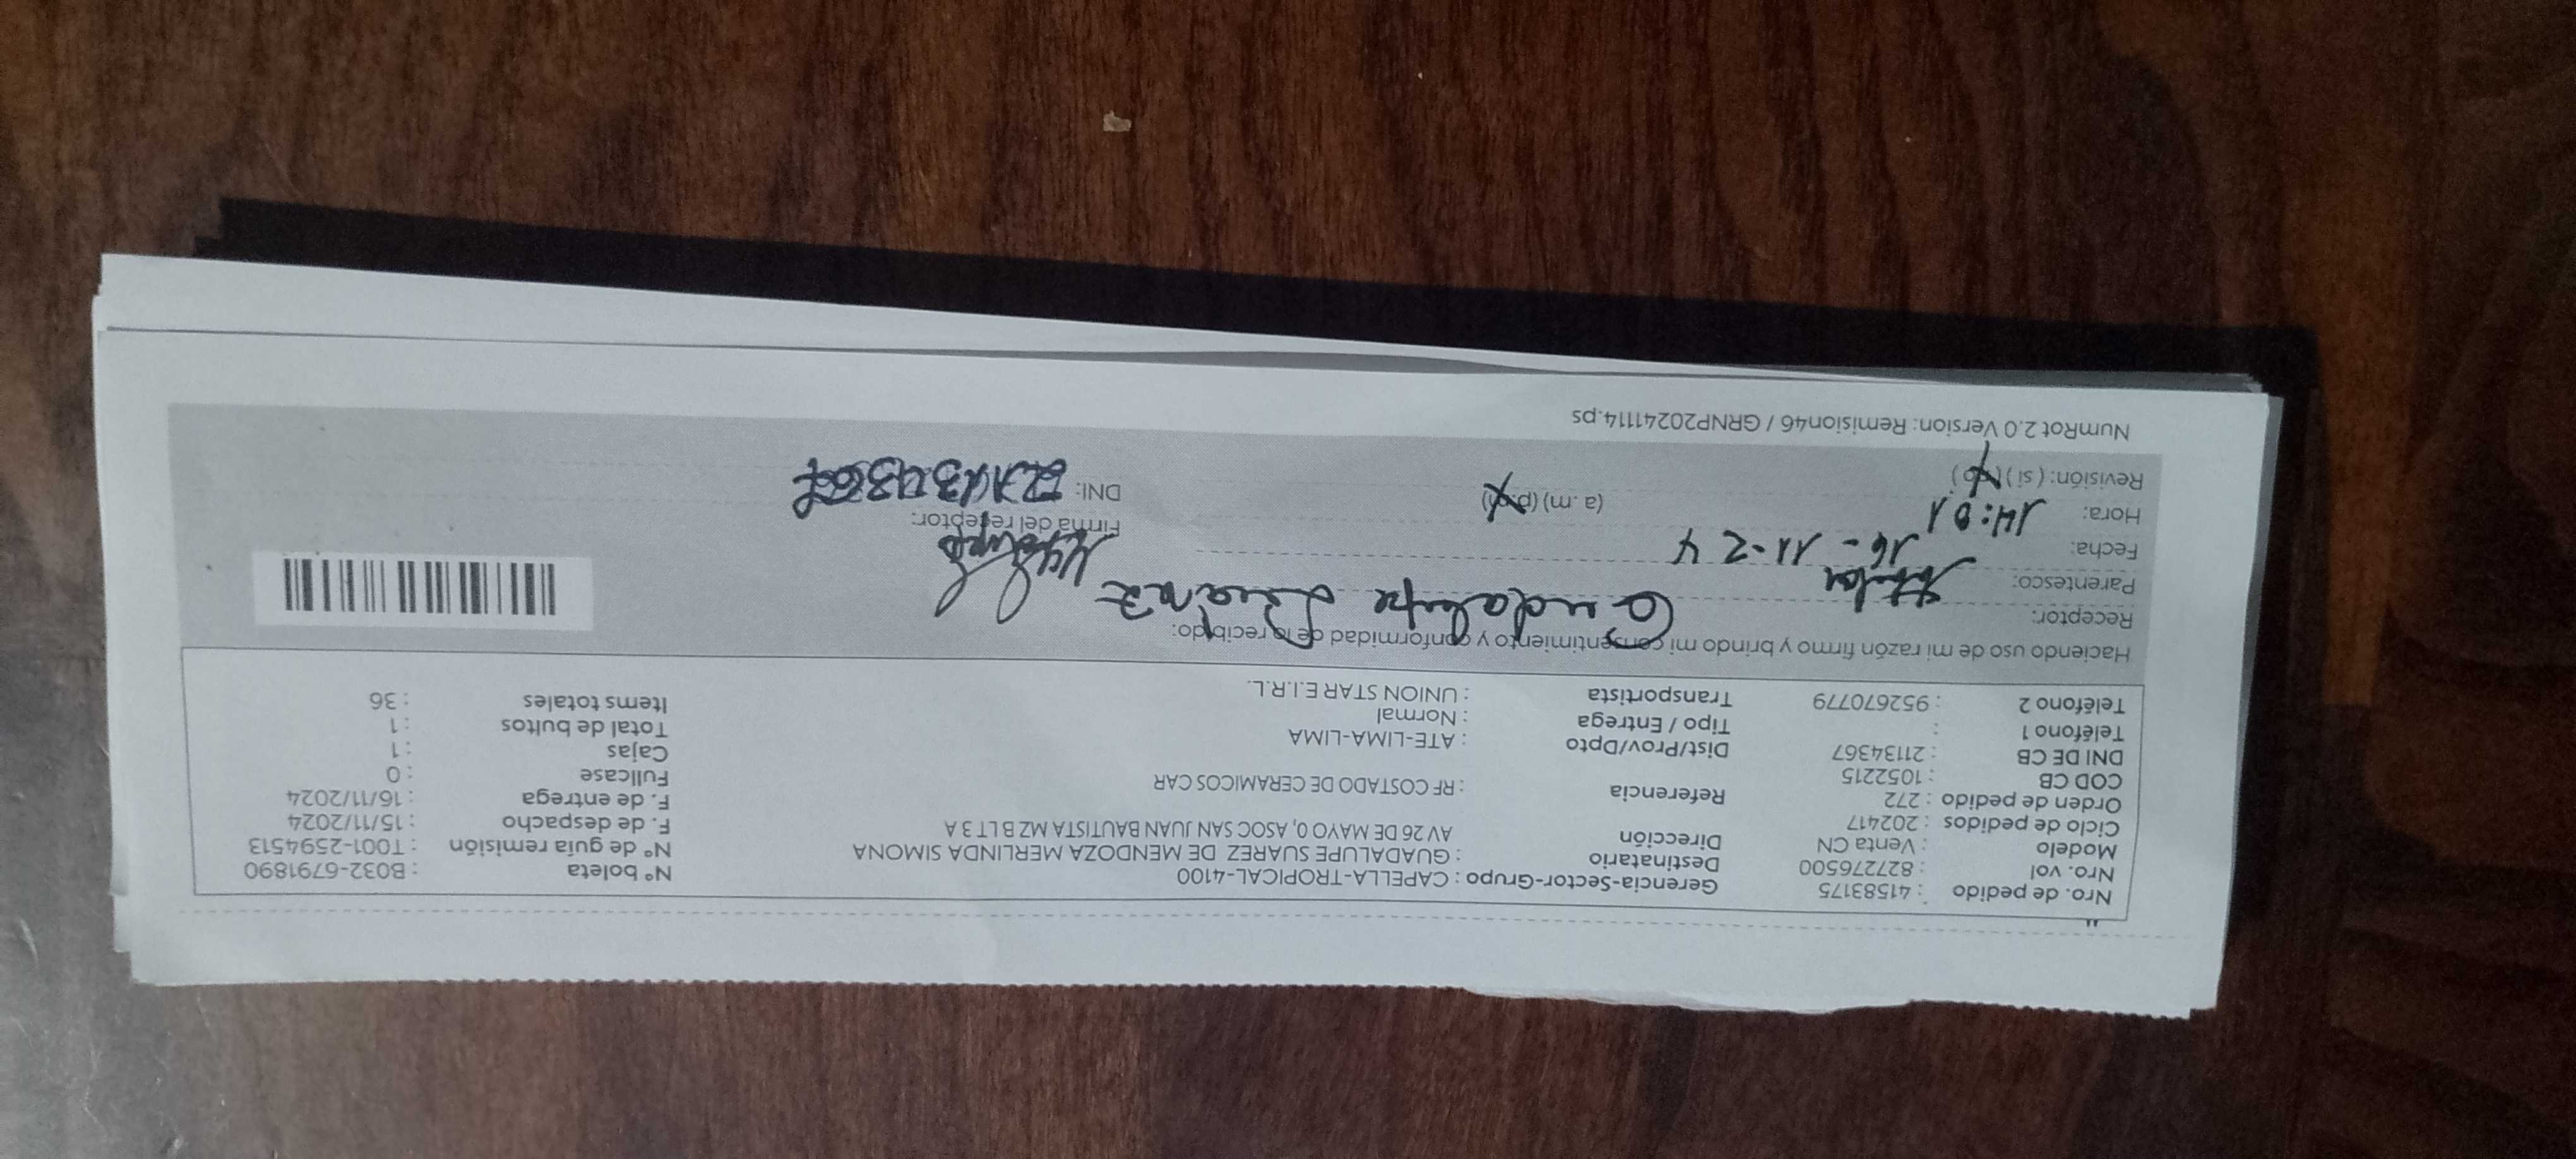 Nro. de pedido : 41583175 Gerencia-Sector-Grupo : CAPELLA-TROPICAL-4100 N° boleta : B032-6791890
Nro. vol : 827276500 Destinatario : GUADALUPE SUAREZ DE MENDOZA MERLINDA SIMONA N° de guía remisión : T001-2594513
Modelo : Venta CN Dirección AV 26 DE MAYO 0, ASOC SAN JUAN BAUTISTA MZ B LT 3 A F. de despacho : 15/11/2024
Ciclo de pedidos : 202417 F. de entrega : 16/11/2024
Orden de pedido : 272 Referencia : RF COSTADO DE CERAMICOS CAR Fullcase : 0
COD CB : 1052215 Cajas : 1
DNI DE CB : 21134367 Dist/Prov/Dpto : ATE-LIMA-LIMA Total de bultos : 1
Teléfono 1 : Tipo / Entrega : Normal Items totales : 36
Teléfono 2 : 952670779 Transportista : UNION STAR E.I.R.L.
Haciendo uso de mi razón firmo y brindo mi consentimiento y conformidad de lo recibido:
Receptor: Guadalupe Suárez
Parentesco: titular
Fecha: 16-11-24 Firma del receptor:
Hora: 14:01 (a. m) (p. m) DNI: 21134367
Revisión: ( si ) ( no )
NumRot 2.0 Version: Remision46 / GRNP20241114.ps